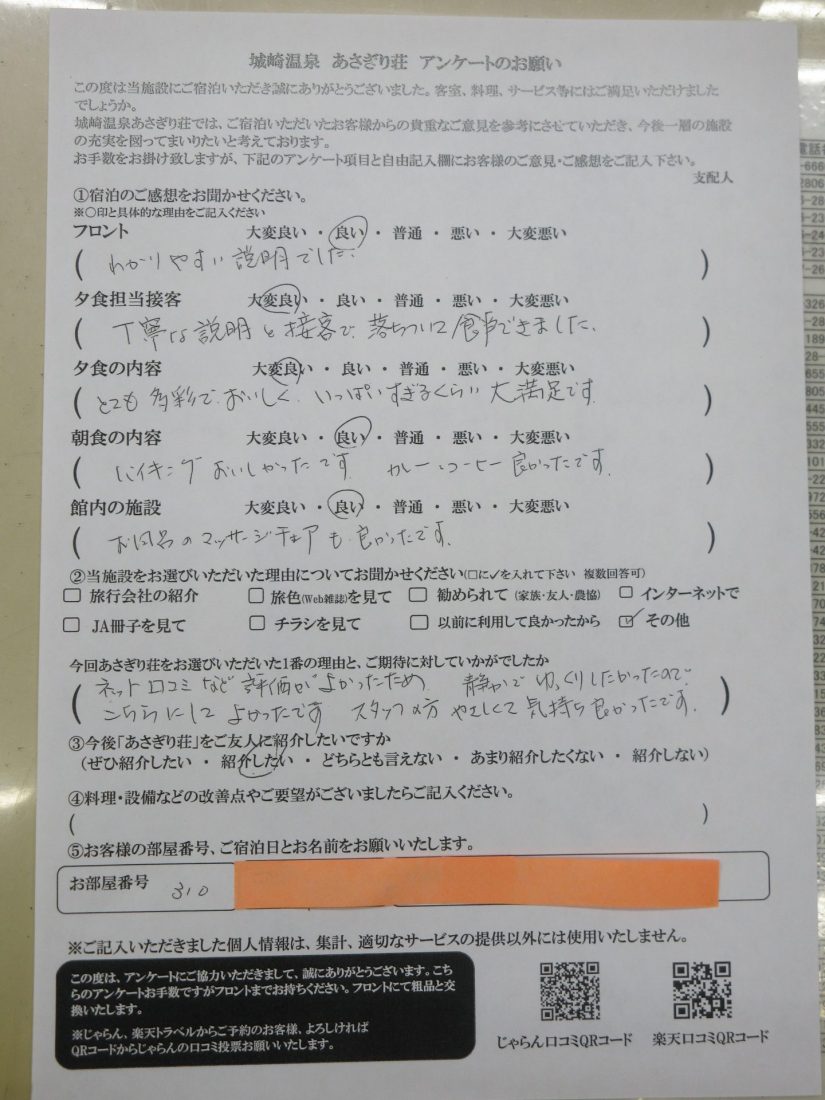 城崎温泉 あさぎり荘 アンケートのお願い
この度は当施設にご宿泊いただき誠にありがとうございました。客室、料理、サービス等にはご満足いただけました
でしょうか。
城崎温泉あさぎり荘では、ご宿泊いただいたお客様からの貴重なご意見を参考にさせていただき、今後一層の施設
の充実を図ってまいりたいと考えております。
お手数をお掛け致しますが、下記のアンケート項目と自由記入欄にお客様のご意見・ご感想をご記入下さい。
支配人
①宿泊のご感想をお聞かせください。
※〇印と具体的な理由をご記入ください
フロント 大変良い ・ 良い ・ 普通 ・ 悪い ・ 大変悪い
( わかりやすい説明でした。 )
夕食担当接客 大変良い ・ 良い ・ 普通 ・ 悪い ・ 大変悪い
( 丁寧な説明と接客で、落ちついて食事できました。 )
夕食の内容 大変良い ・ 良い ・ 普通 ・ 悪い ・ 大変悪い
( とても多彩で、おいしく、いっぱいすぎるくらい大満足です。 )
朝食の内容 大変良い ・ 良い ・ 普通 ・ 悪い ・ 大変悪い
( バイキングおいしかったです。 カレー・コーヒー良かったです。 )
館内の施設 大変良い ・ 良い ・ 普通 ・ 悪い ・ 大変悪い
( お風呂のマッサージチェアも良かったです。 )
②当施設をお選びいただいた理由についてお聞かせください(□に✓を入れて下さい 複数回答可)
□ 旅行会社の紹介 □ 旅色(Web雑誌)を見て □ 勧められて (家族・友人・農協) □ インターネットで
□ JA冊子を見て □ チラシを見て □ 以前に利用して良かったから ☑ その他
今回あさぎり荘をお選びいただいた1番の理由と、ご期待に対していかがでしたか
( ネット口コミなど評価がよかったため 静かでゆっくりしたかったので
こちらにしてよかったです スタッフの方やさしくて気持ち良かったです。 )
③今後「あさぎり荘」をご友人に紹介したいですか
(ぜひ紹介したい ・ 紹介したい ・ どちらとも言えない ・ あまり紹介したくない ・ 紹介しない)
④料理・設備などの改善点やご要望がございましたらご記入ください。
( )
⑤お客様の部屋番号、ご宿泊日とお名前をお願いいたします。
お部屋番号 310
※ご記入いただきました個人情報は、集計、適切なサービスの提供以外には使用いたしません。
この度は、アンケートにご協力いただきまして、誠にありがとうございます。こち
らのアンケートお手数ですがフロントまでお持ちください。フロントにて粗品と交
換いたします。
※じゃらん、楽天トラベルからご予約のお客様、よろしければ
QRコードからじゃらんの口コミ投票お願いいたします。
じゃらん口コミQRコード 楽天口コミQRコード